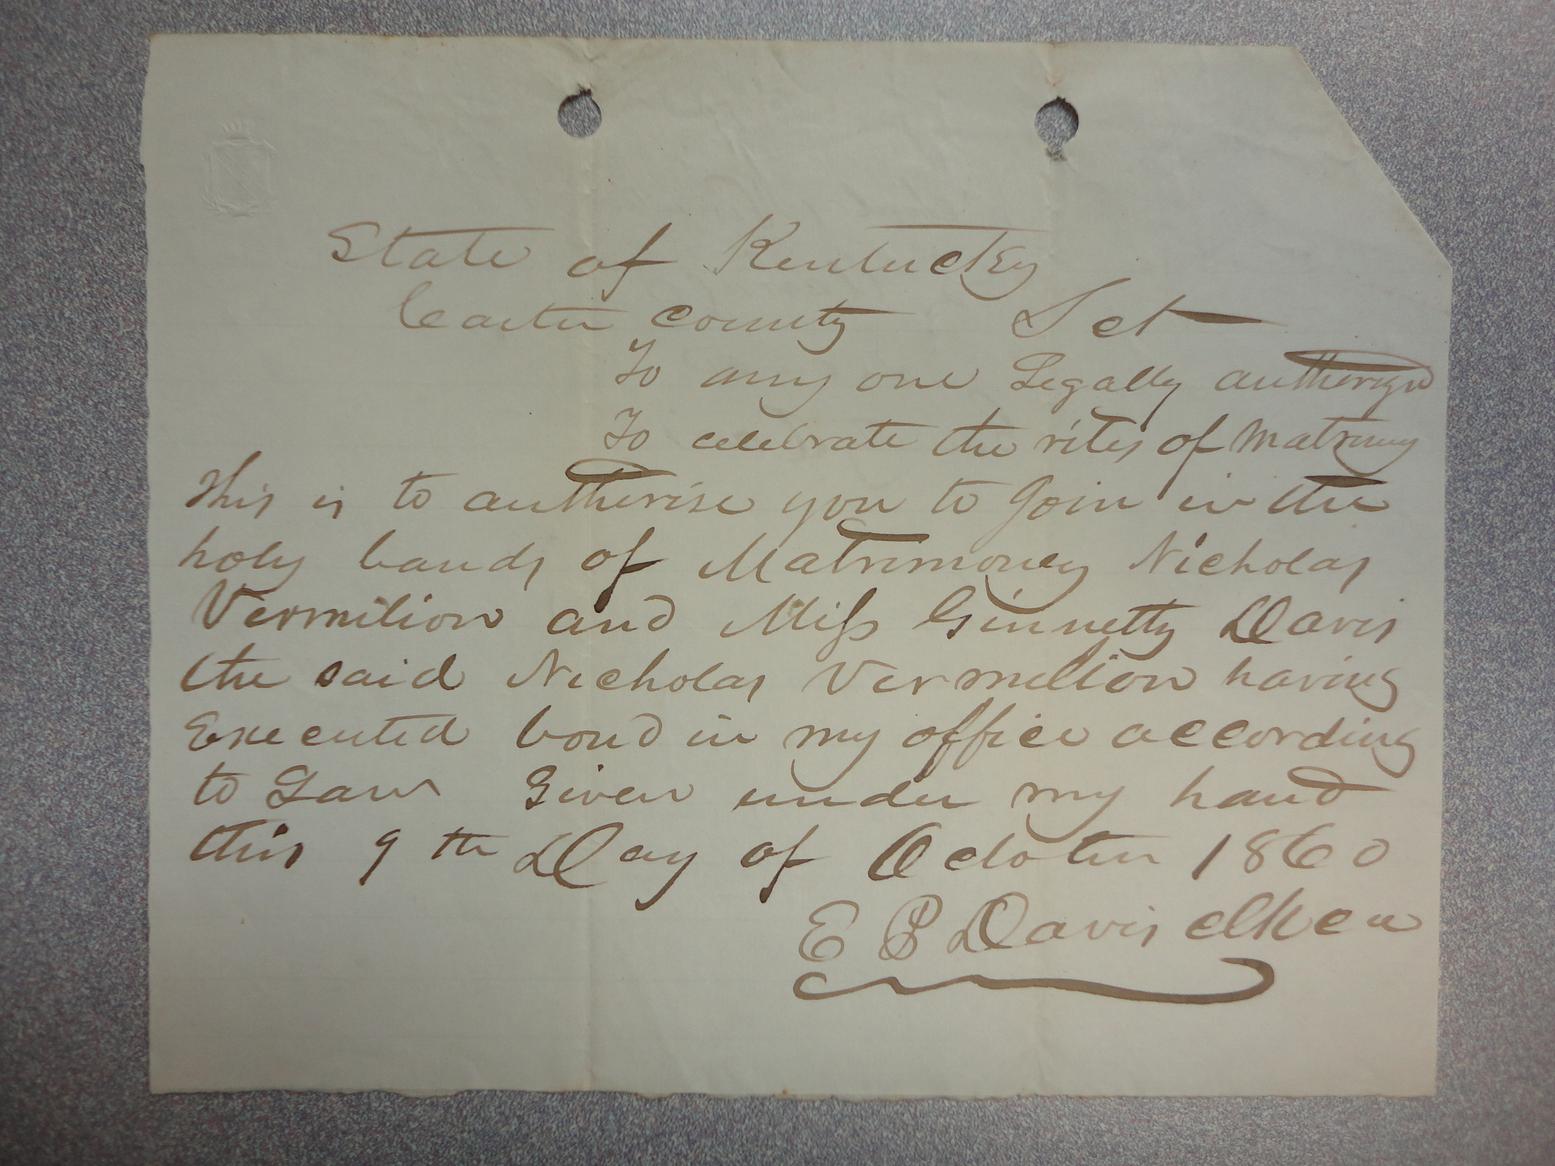 State of Kentucky
Carter County Sct
To any one Legally autherizd
To celebrate the rites of Matrimy
This is to autherise you to Join in the
holy bands of Matrimoney Nicholas
Vermilion and Miss Ginnetty Davis
the said Nicholas Vermillion having
Executed bond in my office according
to Law Given under my hand
this 9th Day of October 1860
E B Davis